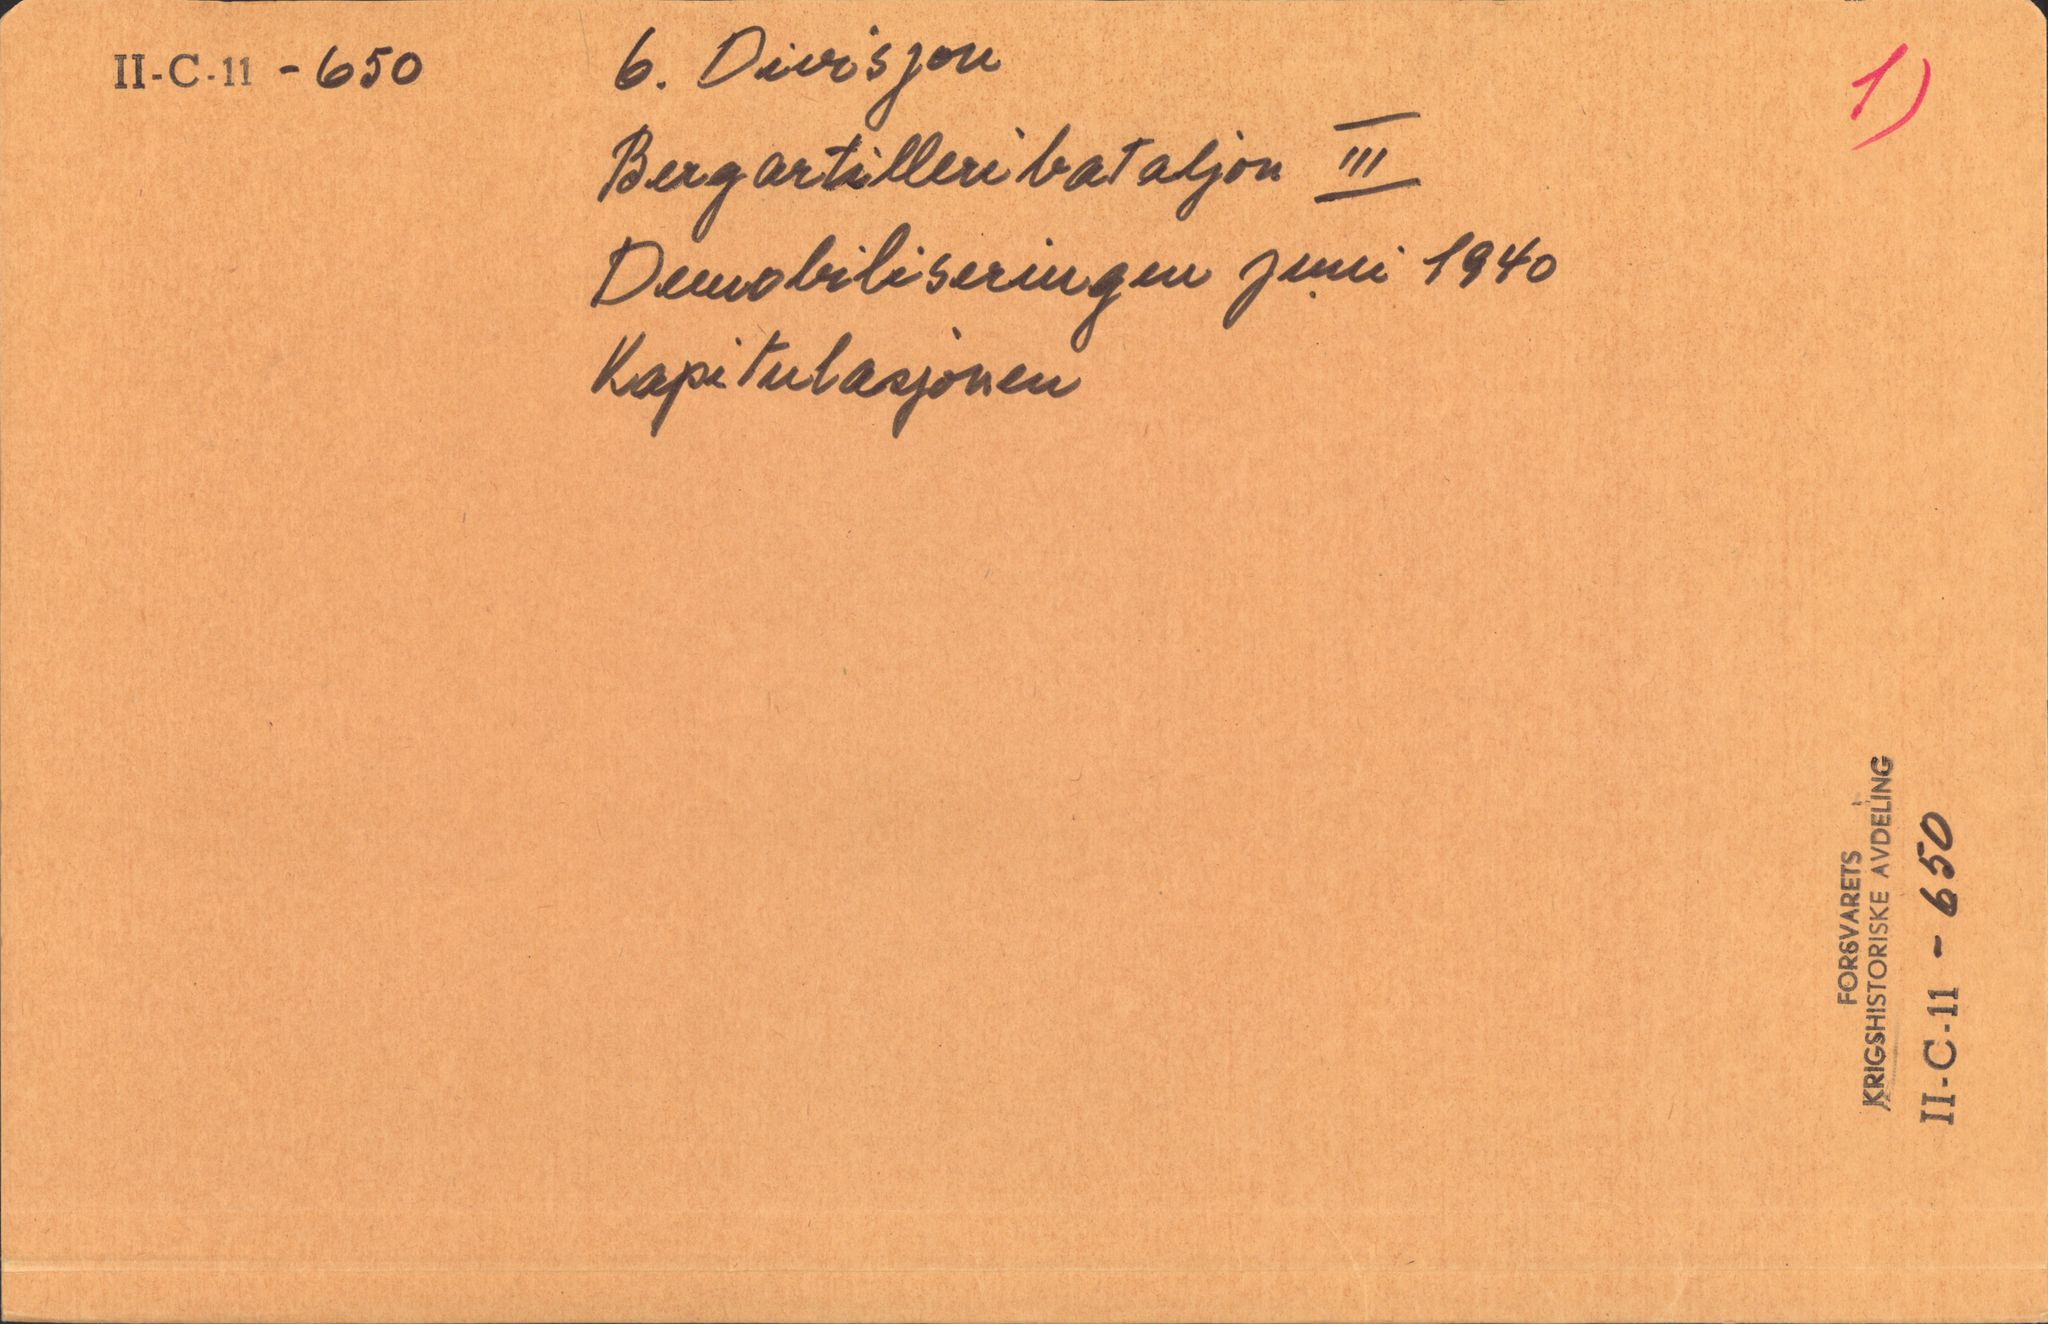 II-C-11 - 650
6. Divisjon
1)
Bergartilleribataljon III
Demobiliseringen juni 1940
Kapitulasjonen
FORSVARETS
KRIGSHISTORISKE AVDELING
II-C-11 - 650